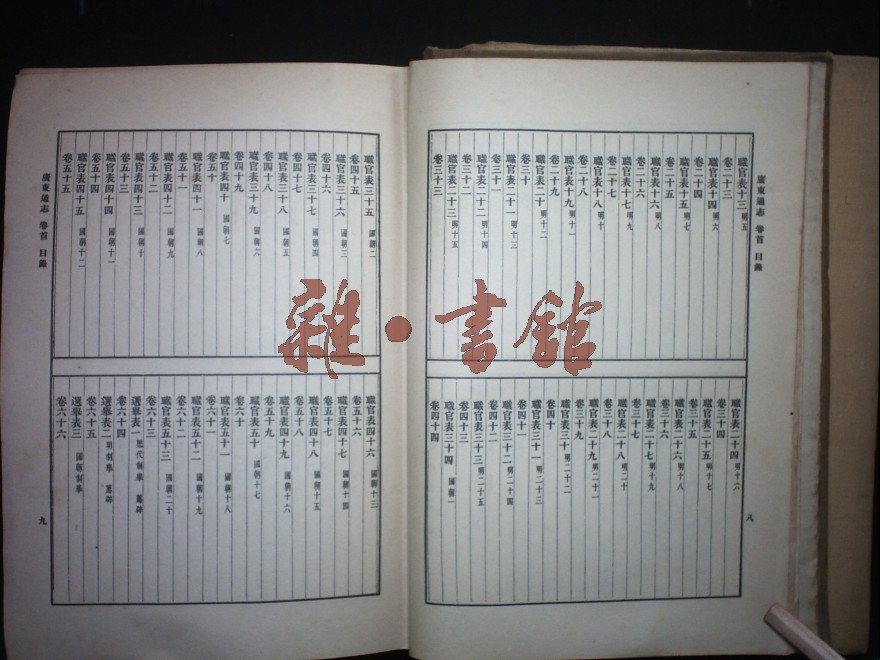 廣東通志 卷首 目錄
職官表十三 明五
卷二十三
職官表十四 明六
卷二十四
職官表十五 明七
卷二十五
職官表十六 明八
卷二十六
職官表十七 明九
卷二十七
職官表十八 明十
卷二十八
職官表十九 明十一
卷二十九
職官表二十 明十二
卷三十
職官表二十一 明十三
卷三十一
職官表二十二 明十四
卷三十二
職官表二十三 明十五
卷三十三
職官表二十四 明十六
卷三十四
職官表二十五 明十七
卷三十五
職官表二十六 明十八
卷三十六
職官表二十七 明十九
卷三十七
職官表二十八 明二十
卷三十八
職官表二十九 明二十一
卷三十九
職官表三十 明二十二
卷四十
職官表三十一 明二十三
卷四十一
職官表三十二 明二十四
卷四十二
職官表三十三 明二十五
卷四十三
職官表三十四 國朝一
卷四十四
八
職官表三十五 國朝二
卷四十五
職官表三十六 國朝三
卷四十六
職官表三十七 國朝四
卷四十七
職官表三十八 國朝五
卷四十八
職官表三十九 國朝六
卷四十九
職官表四十 國朝七
卷五十
職官表四十一 國朝八
卷五十一
職官表四十二 國朝九
卷五十二
職官表四十三 國朝十
卷五十三
職官表四十四 國朝十一
卷五十四
職官表四十五 國朝十二
卷五十五
職官表四十六 國朝十三
卷五十六
職官表四十七 國朝十四
卷五十七
職官表四十八 國朝十五
卷五十八
職官表四十九 國朝十六
卷五十九
職官表五十 國朝十七
卷六十
職官表五十一 國朝十八
卷六十一
職官表五十二 國朝十九
卷六十二
職官表五十三 國朝二十
卷六十三
選舉表一 歷代制舉 薦辟
卷六十四
選舉表二 明制舉 薦辟
卷六十五
選舉表三 國朝制舉
卷六十六
廣東通志 卷首 目錄
九
雜·書館